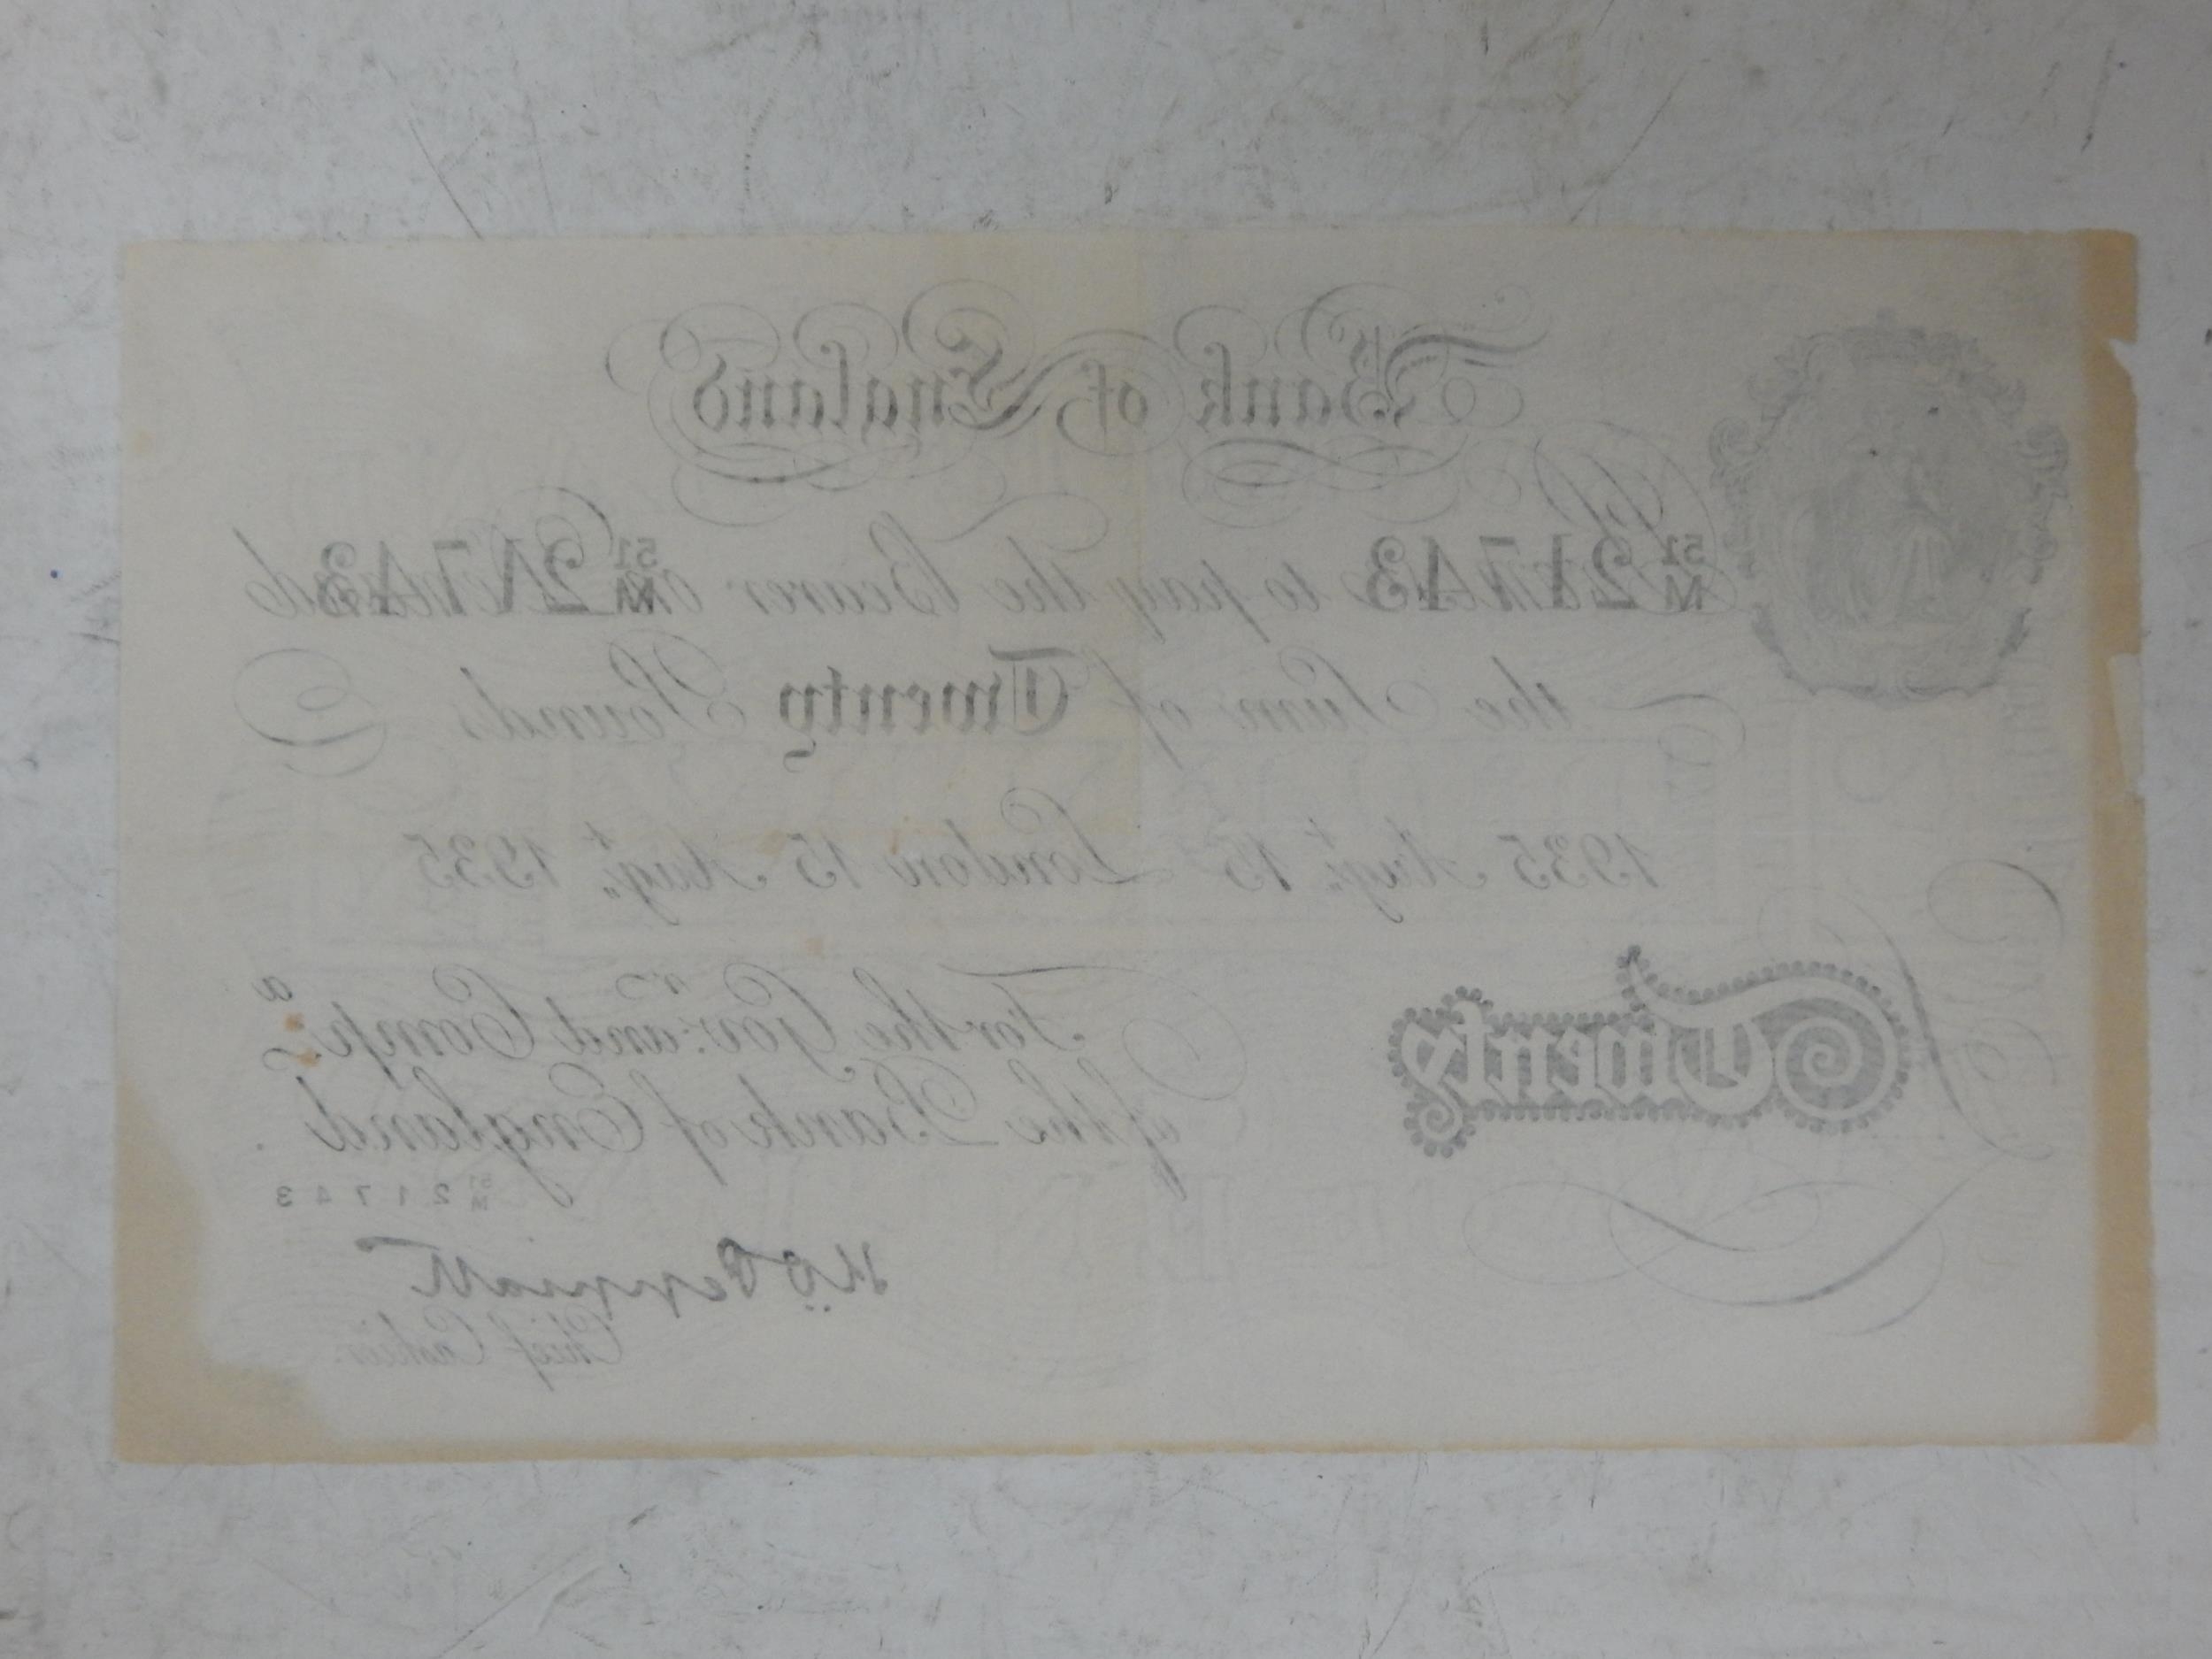 Bank of England
51 M 21743 51 M 21743
Promise to pay the Bearer on Demand
the Sum of Twenty Pounds
1935 Augt. 15 London 15 Augt. 1935
For the Govr. and Compa.
Twenty
of the Bank of England.
51 M 21743
Chief Cashier.